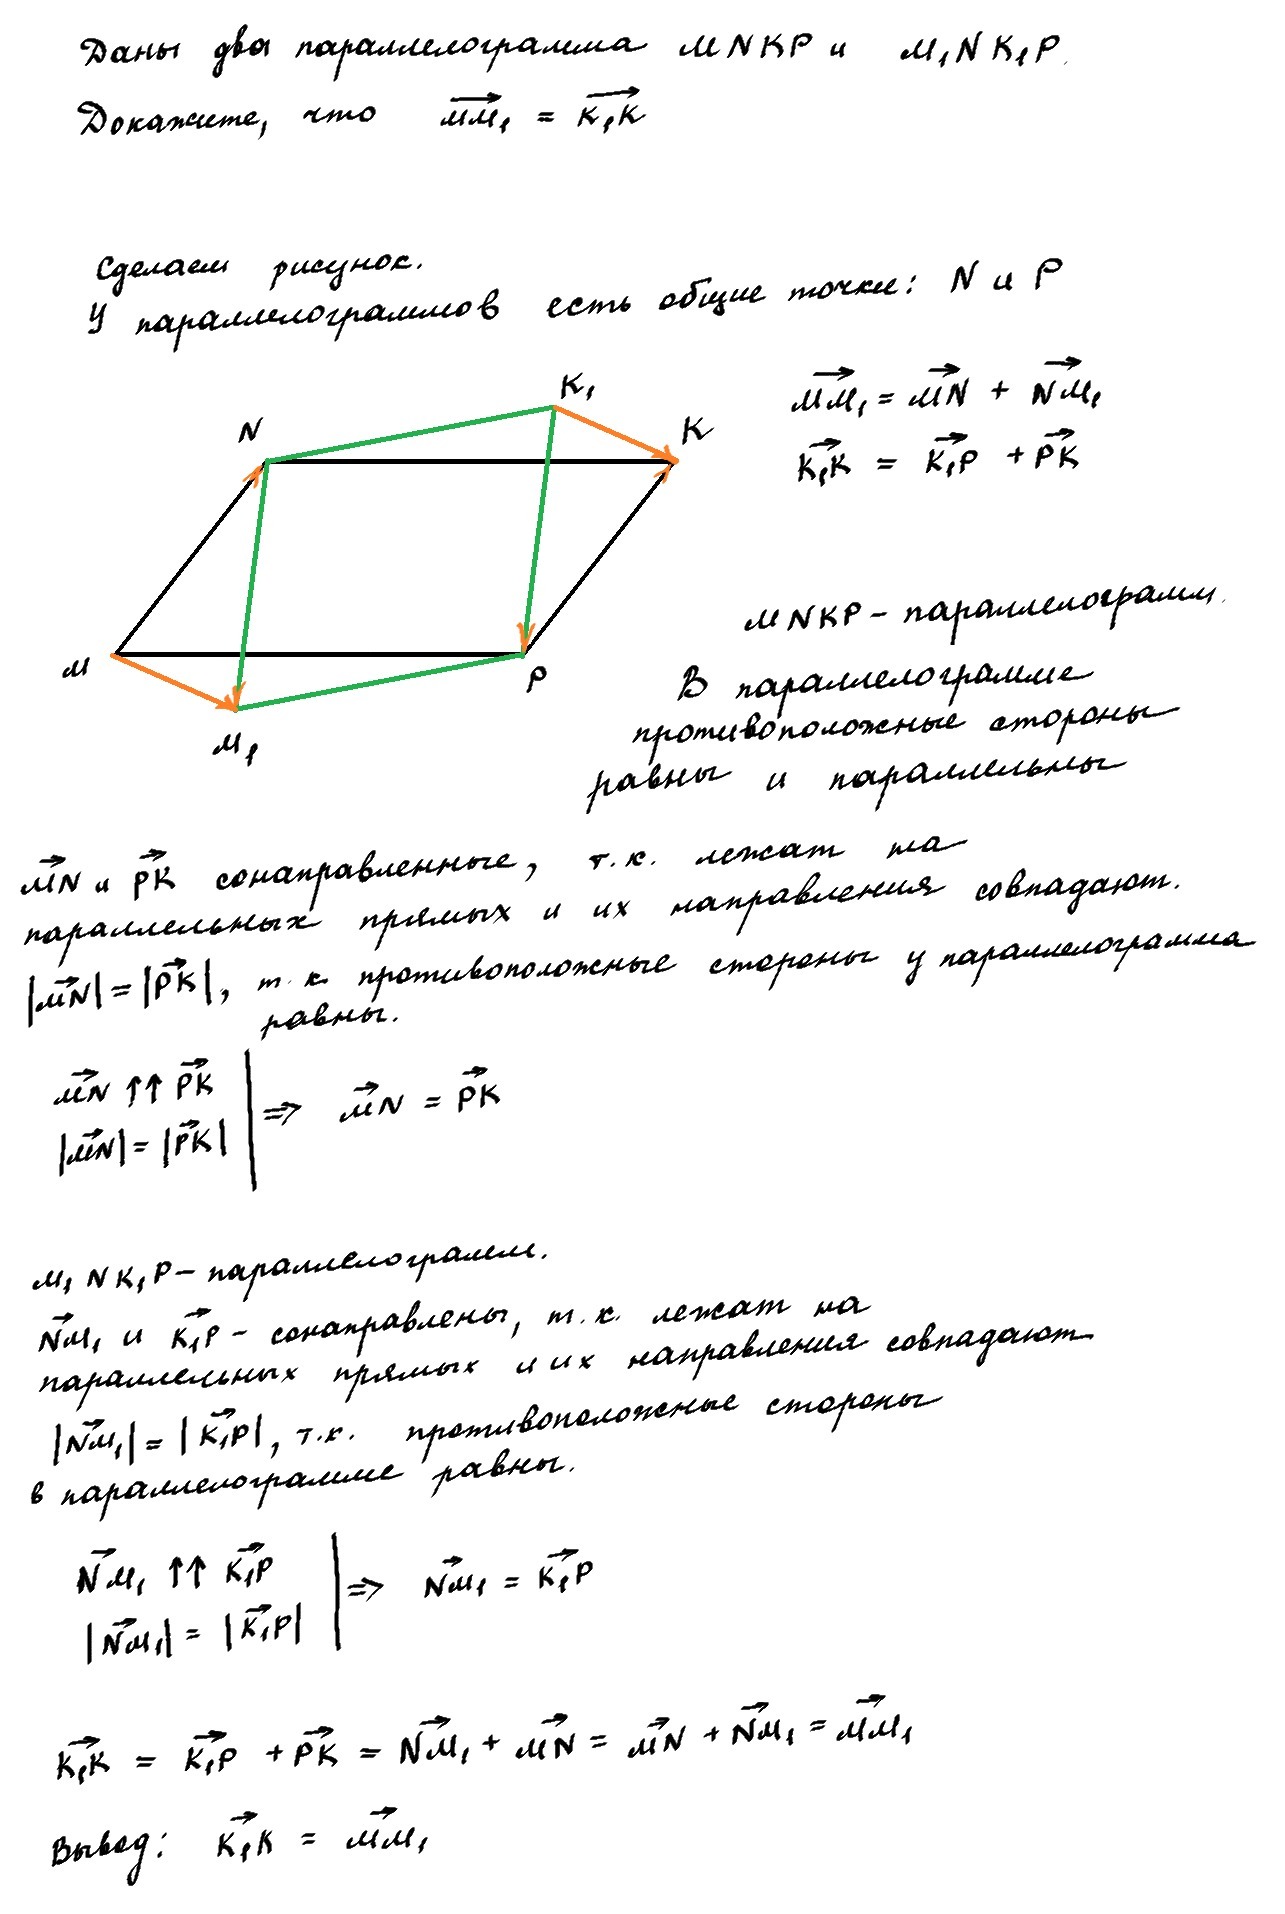 Даны два параллелограмма MNKP и M₁NK₁P.
Докажите, что $\overrightarrow{MM_1} = \overrightarrow{K_1K}$
Сделаем рисунок.
У параллелограммов есть общие точки: N и P
N
K₁
K
M
P
M₁
$\overrightarrow{MM_1} = \overrightarrow{MN} + \overrightarrow{NM_1}$
$\overrightarrow{K_1K} = \overrightarrow{K_1P} + \overrightarrow{PK}$
MNKP – параллелограмм.
В параллелограмме
противоположные стороны
равны и параллельны
$\overrightarrow{MN}$ и $\overrightarrow{PK}$ сонаправленные, т.к. лежат на
параллельных прямых и их направления совпадают.
$|\overrightarrow{MN}| = |\overrightarrow{PK}|$, т.к. противоположные стороны у параллелограмма
равны.
$\overrightarrow{MN} ↑↑ \overrightarrow{PK}$
$|\overrightarrow{MN}| = |\overrightarrow{PK}|$ | ⇒ $\overrightarrow{MN} = \overrightarrow{PK}$
M₁NK₁P – параллелограмм.
$\overrightarrow{NM_1}$ и $\overrightarrow{K_1P}$ – сонаправлены, т.к. лежат на
параллельных прямых и их направления совпадают
$|\overrightarrow{NM_1}| = |\overrightarrow{K_1P}|$, т.к. противоположные стороны
в параллелограмме равны.
$\overrightarrow{NM_1} ↑↑ \overrightarrow{K_1P}$
$|\overrightarrow{NM_1}| = |\overrightarrow{K_1P}|$ | ⇒ $\overrightarrow{NM_1} = \overrightarrow{K_1P}$
$\overrightarrow{K_1K} = \overrightarrow{K_1P} + \overrightarrow{PK} = \overrightarrow{NM_1} + \overrightarrow{MN} = \overrightarrow{MN} + \overrightarrow{NM_1} = \overrightarrow{MM_1}$
Вывод: $\overrightarrow{K_1K} = \overrightarrow{MM_1}$